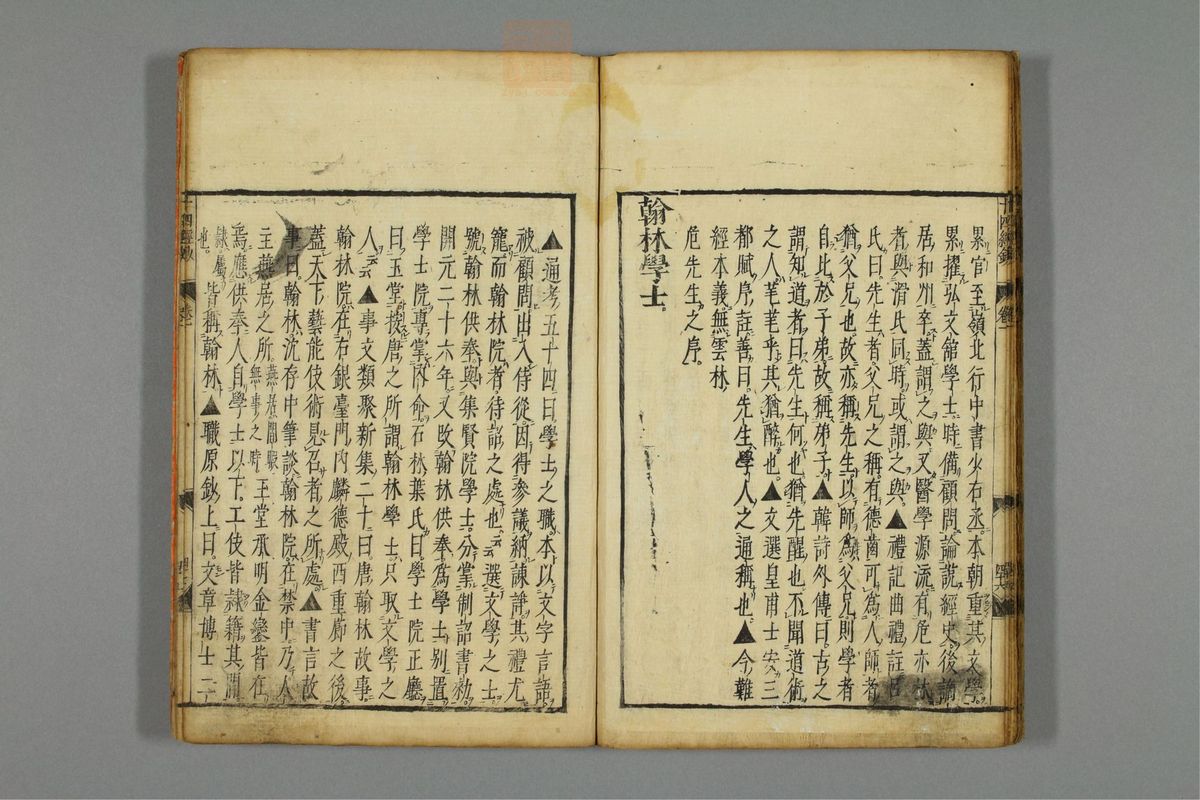 累官至嶺北行中書左右丞本朝重其文學
累擢弘文舘學士時備顧問論説經史後謫
居和州卒蓋謂之與又醫學源流有危亦林
者與滑氏同時或謂之與▲禮記曲禮註呂
氏曰先生者父兄之稱有德齒可爲人師者
猶父兄也故亦稱先生以師爲父兄則學者
自比於子弟故稱弟子▲韓詩外傳曰古之
謂知道者曰先生何也猶先醒也不聞道術
之人芼芼乎其猶醉也▲文選皇甫士安三
都賦序註善曰先生學人之通稱也▲今難
經本義無雲林
危先生之序
翰林學士
▲通考五十四曰學士之職本以文字言語
被顧問出入侍從因得參議納諫諍其禮尤
寵而翰林院者待詔之處也云云選文學之士
號翰林供奉與集賢院學士分掌制詔書勑
開元二十六年又改翰林供奉爲學士别置
學士院專掌内命石林葉氏曰學士院正廳
曰玉堂按唐之所謂翰林學士只取文學之
人云云▲事文類聚新集二十曰唐翰林故事
翰林院在右銀臺門内麟德殿西重廊之後
蓋天下藝能伎術見召者之所處▲書言故
事曰翰林沈存中筆談翰林院在禁中乃人
主燕居之所燕居閒暇無事之時玉堂承明金鑾皆在
焉應供奉人自學士以下工伎皆隷籍其間
隷屬也皆稱翰林▲職原鈔上曰文章博士二